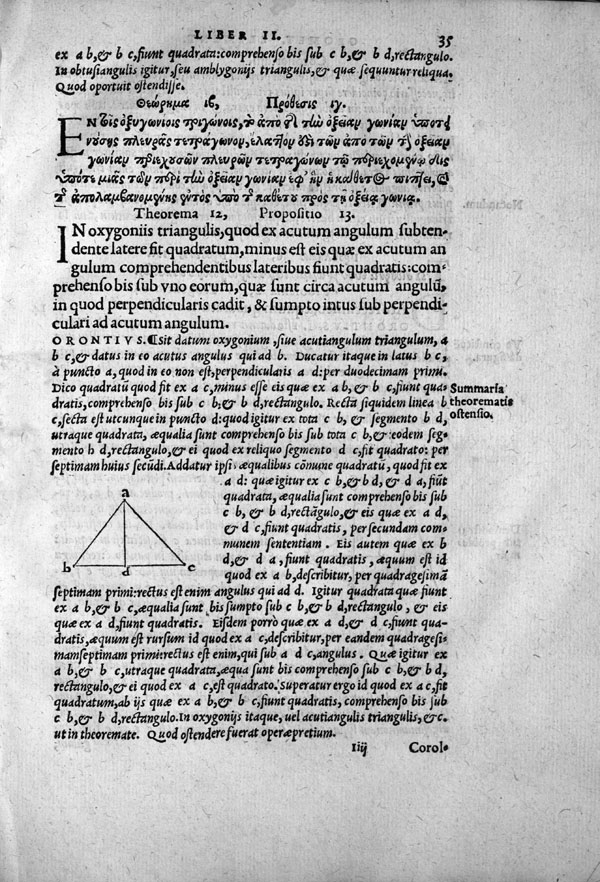 LIBER II. 35
ex a b, & b c, fiunt quadrata: comprehenso bis sub c b, & b d, rectangulo.
In obtusiangulis igitur, seu amblygonijs triangulis, & quæ sequuntur reliqua.
Quod oportuit ostendisse.
Θεώρημα ιβ, Πρόθεσις ιγ.
Theorema 12, Propositio 13.
IN oxygoniis triangulis, quod ex acutum angulum subten-
dente latere fit quadratum, minus est eis quæ ex acutum an
gulum comprehendentibus lateribus fiunt quadratis: com-
prehenso bis sub vno eorum, quæ sunt circa acutum angulũ,
in quod perpendicularis cadit, & sumpto intus sub perpendi-
culari ad acutum angulum.
ORONTIVS. ¶Sit datum oxygonium, siue acutiangulum triangulum, a
b c, & datus in eo acutus angulus qui ad b. Ducatur itaque in latus b c,
à puncto a, quod in eo non est, perpendicularis a d: per duodecimam primi.
Dico quadratũ quod fit ex a c, minus esse eis quæ ex a b, & b c, fiunt qua-
dratis, comprehenso bis sub c b, & b d, rectangulo. Recta siquidem linea b
c, secta est utcunque in puncto d: quod igitur ex tota c b, & segmento b d,
utraque quadrata, æqualia sunt comprehenso bis sub tota c b, & eodem seg-
mento b d, rectangulo, & ei quod ex reliquo segmento d c, fit quadrato: per
septimam huius secũdi. Addatur ipsis æqualibus cõmune quadratũ, quod fit ex
a d: quæ igitur ex c b, & b d, & d a, fiũt
quadrata, æqualia sunt comprehenso bis sub
c b, & b d, rectãgulo, & eis quæ ex a d,
& d c, fiunt quadratis, per secundam com-
munem sententiam. Eis autem quæ ex b
d, & d a, fiunt quadratis, æquum est id
quod ex a b, describitur, per quadragesimã
septimam primi: rectus est enim angulus qui ad d. Igitur quadrata quæ fiunt
ex a b, & b c, æqualia sunt bis sumpto sub c b, & b d, rectangulo, & eis
quæ ex a d, fiunt quadratis. Eisdem porrò quæ ex a d, & d c, fiunt qua-
dratis, æquum est rursum id quod ex a c, describitur, per eandem quadragesi-
mamseptimam primi: rectus est enim, qui sub a d c, angulus. Quæ igitur ex
a b, & b c, utraque quadrata, æqua sunt bis comprehenso sub c b, & b d,
rectangulo, & ei quod ex a c, est quadrato. Superatur ergo id quod ex a c, fit
quadratum, ab ijs quæ ex a b, & b c, fiunt quadratis, comprehenso bis sub
c b, & b d, rectangulo. In oxygonijs itaque, uel acutiangulis triangulis, &c.
ut in theoremate. Quod ostendere fuerat operæpretium.
Summaria
theorematis
ostensio.
a
b d c
Iiij Corol-